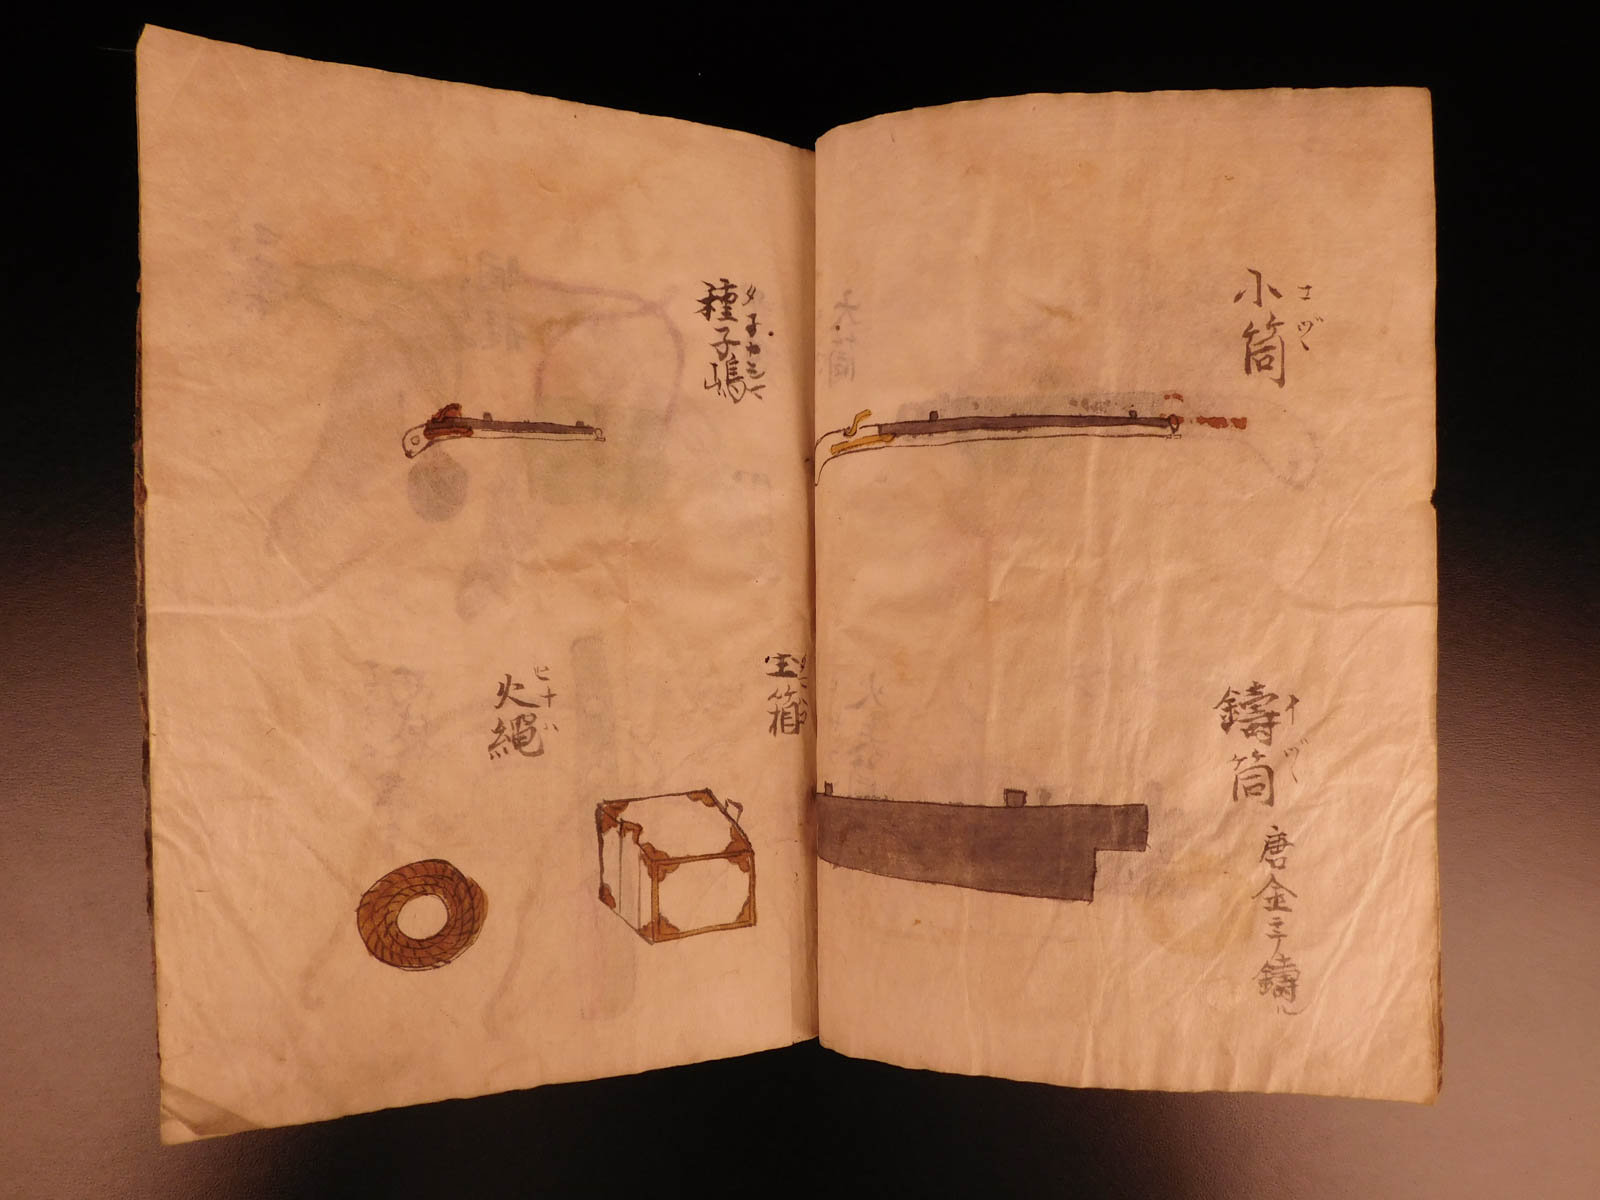 小筒
コヅヽ
鑄筒
イヅヽ
唐金ニテ鑄ル
種子嶋
タネカシマ
宝箱
火繩
ヒナハ